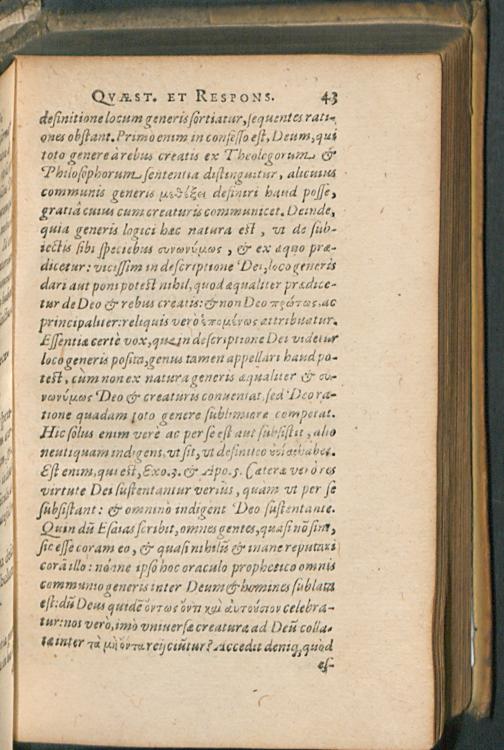 QVÆST. ET RESPONS. 43
definitione locum generis sortiatur, sequentes rati-
ones obstant. Primo enim in confesso est, Deum, qui
toto genere à rebus creatis ex Theologorum &
Philosophorum sententia distinguitur, alicuius
communis generis μεθέξει definiri haud posse,
gratiâ cuius cum creaturis communicet. Deinde,
quia generis logici hæc natura est, vt de sub-
iectis sibi speciebus συνωνύμως, & ex æquo præ-
dicetur: vicissim in descriptione Dei, loco generis
dari aut poni potest nihil, quod æqualiter prædice-
tur de Deo & rebus creatis: & non Deo πρώτως, ac
principaliter: reliquis verò ἑπομένως attribuatur.
Essentia certè vox, quæ in descriptione Dei videtur
loco generis posita, genus tamen appellari haud po-
test, cùm non ex natura generis æqualiter & συ-
νωνύμως Deo & creaturis conueniat, sed Deo ra-
tione quadam toto genere sublimiore competat.
Hic solus enim verè ac per se est aut subsistit, alio
neutiquam indigens, vt sit, vt definitio habet.
Est enim, qui est, Exo. 3. & Apo. 5. Cæteræ verò res
virtute Dei sustentantur veriùs, quam vt per se
subsistant: & omninò indigent Deo sustentante.
Quin dũ Esaias scribit, omnes gentes, quasi nõ sint,
sic esse coram eo, & quasi nihilũ & inane reputari
corã illo: nónne ipso hoc oraculo prophetico omnis
communio generis inter Deum & homines sublata
est: dũ Deus quidẽ ὄντως ὄντι καὶ αὐτούσιον celebra-
tur: nos verò, imò vniuersæ creaturæ ad Deũ colla-
tæ inter τὰ μὴ ὄντα reijciũtur? Accedit deniq, quòd
es-